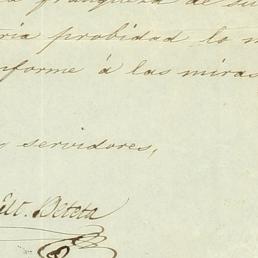 franqueza de su
ria probidad lo m
nforme á las miras
servidores,
Deteta